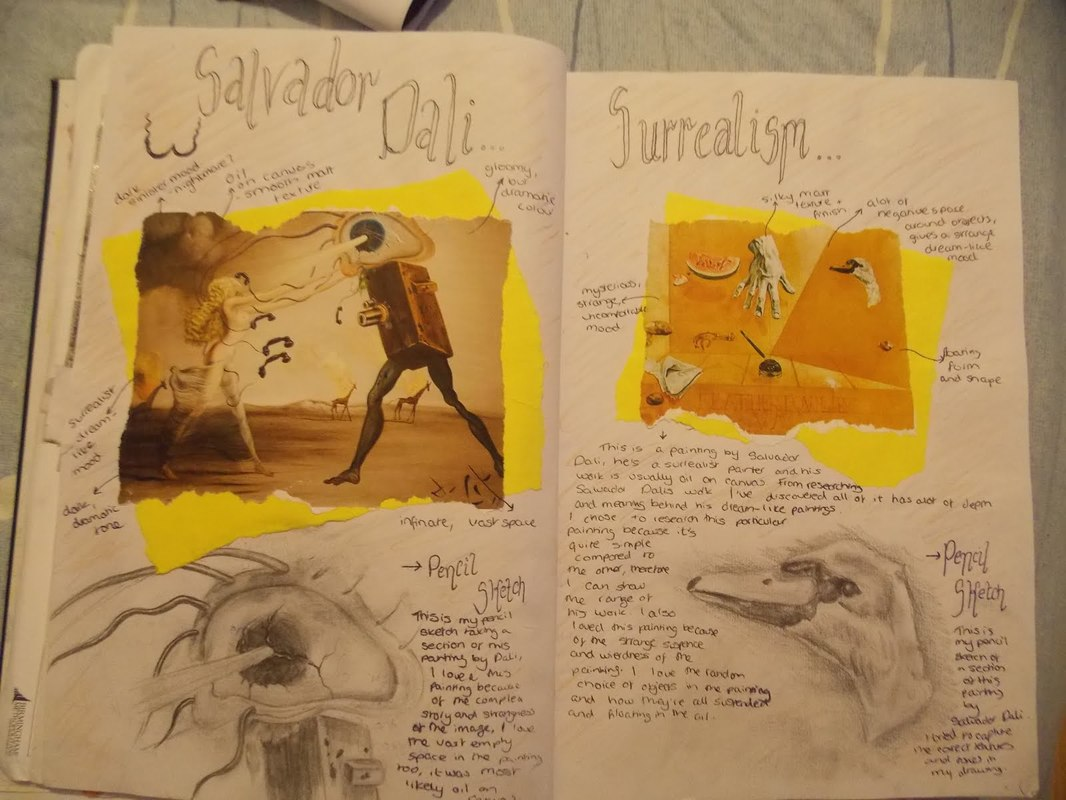 Salvador
Dali...
dark
sinister mood
nightmare?
Oil
on canvas
smooth matt
texture
gloomy,
but
dramatic
colour
surrealist
dream
like
mood
dark,
dramatic
tone
infinate, vast space
→ Pencil
Sketch
This is my pencil
sketch taking a
section of this
painting by Dali,
I love this
painting because
of the complex
story and strangness
of the image, I love
the vast empty
space in the painting
too, it was most
likely oil on
Surrealism...
silky matt
texture +
finish
a lot of
negative space
around objects,
gives a strange
dream-like
mood
mysterious,
strange,
uncomfortable
mood
floating
form
and shape
This is a painting by Salvador
Dali, he's a surrealist painter and his
work is usually oil on canvas. From researching
Salvador Dalis work I've discovered all of it has alot of depth
and meaning behind his dream-like paintings.
I chose to research this particular
painting because it's
quite simple
compared to
the other, therefore
I can show
the range of
his work. I also
loved this painting because
of the strange suspence
and wierdness of the
painting. I love the random
choice of objects in the painting
and how they're all suspended
and floating in the air.
→ Pencil
Sketch
This is
my pencil
sketch of
a section
of this
painting
by
Salvador Dali.
I tried to capture
the correct features
and tones in
my drawing.